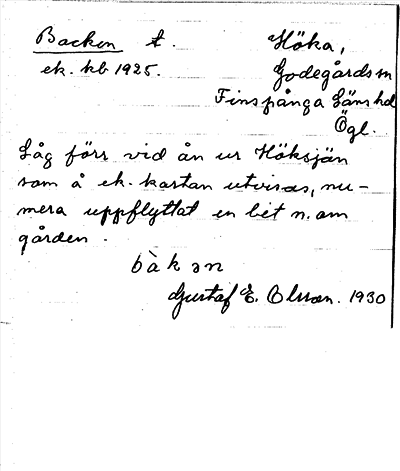 Backen t. Höka,
ek. kb 1925. Godegårds sn
Finspånga läns hd
Ögl.
Låg förr vid ån ur Höksjön
som å ek. kartan utvisas, nu-
mera uppflyttat en bit n. om
gården.
bàkən
Gustaf E. Olsson. 1930